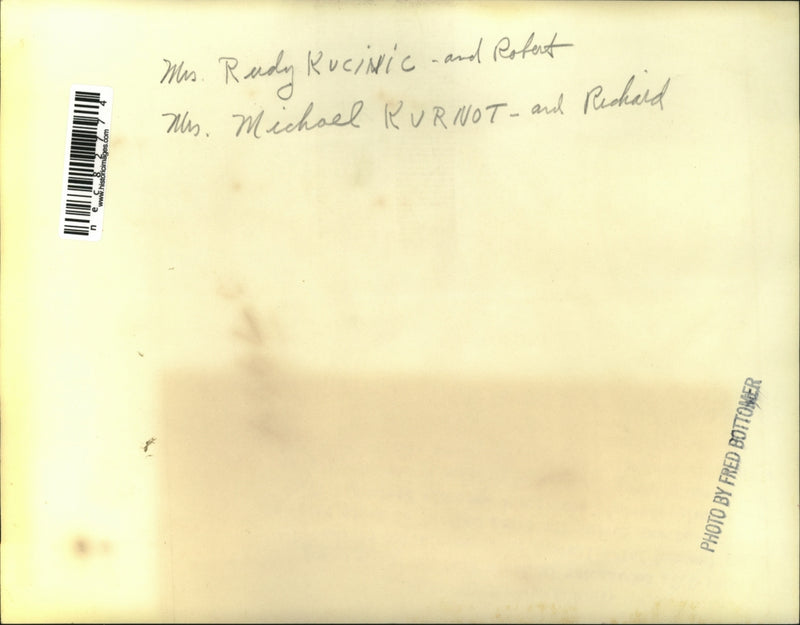 Mrs. Rudy KUCINIC - and Robert
Mrs. Michael KURNOT - and Richard
www.historicimages.com
PHOTO BY FRED BOTTOMER